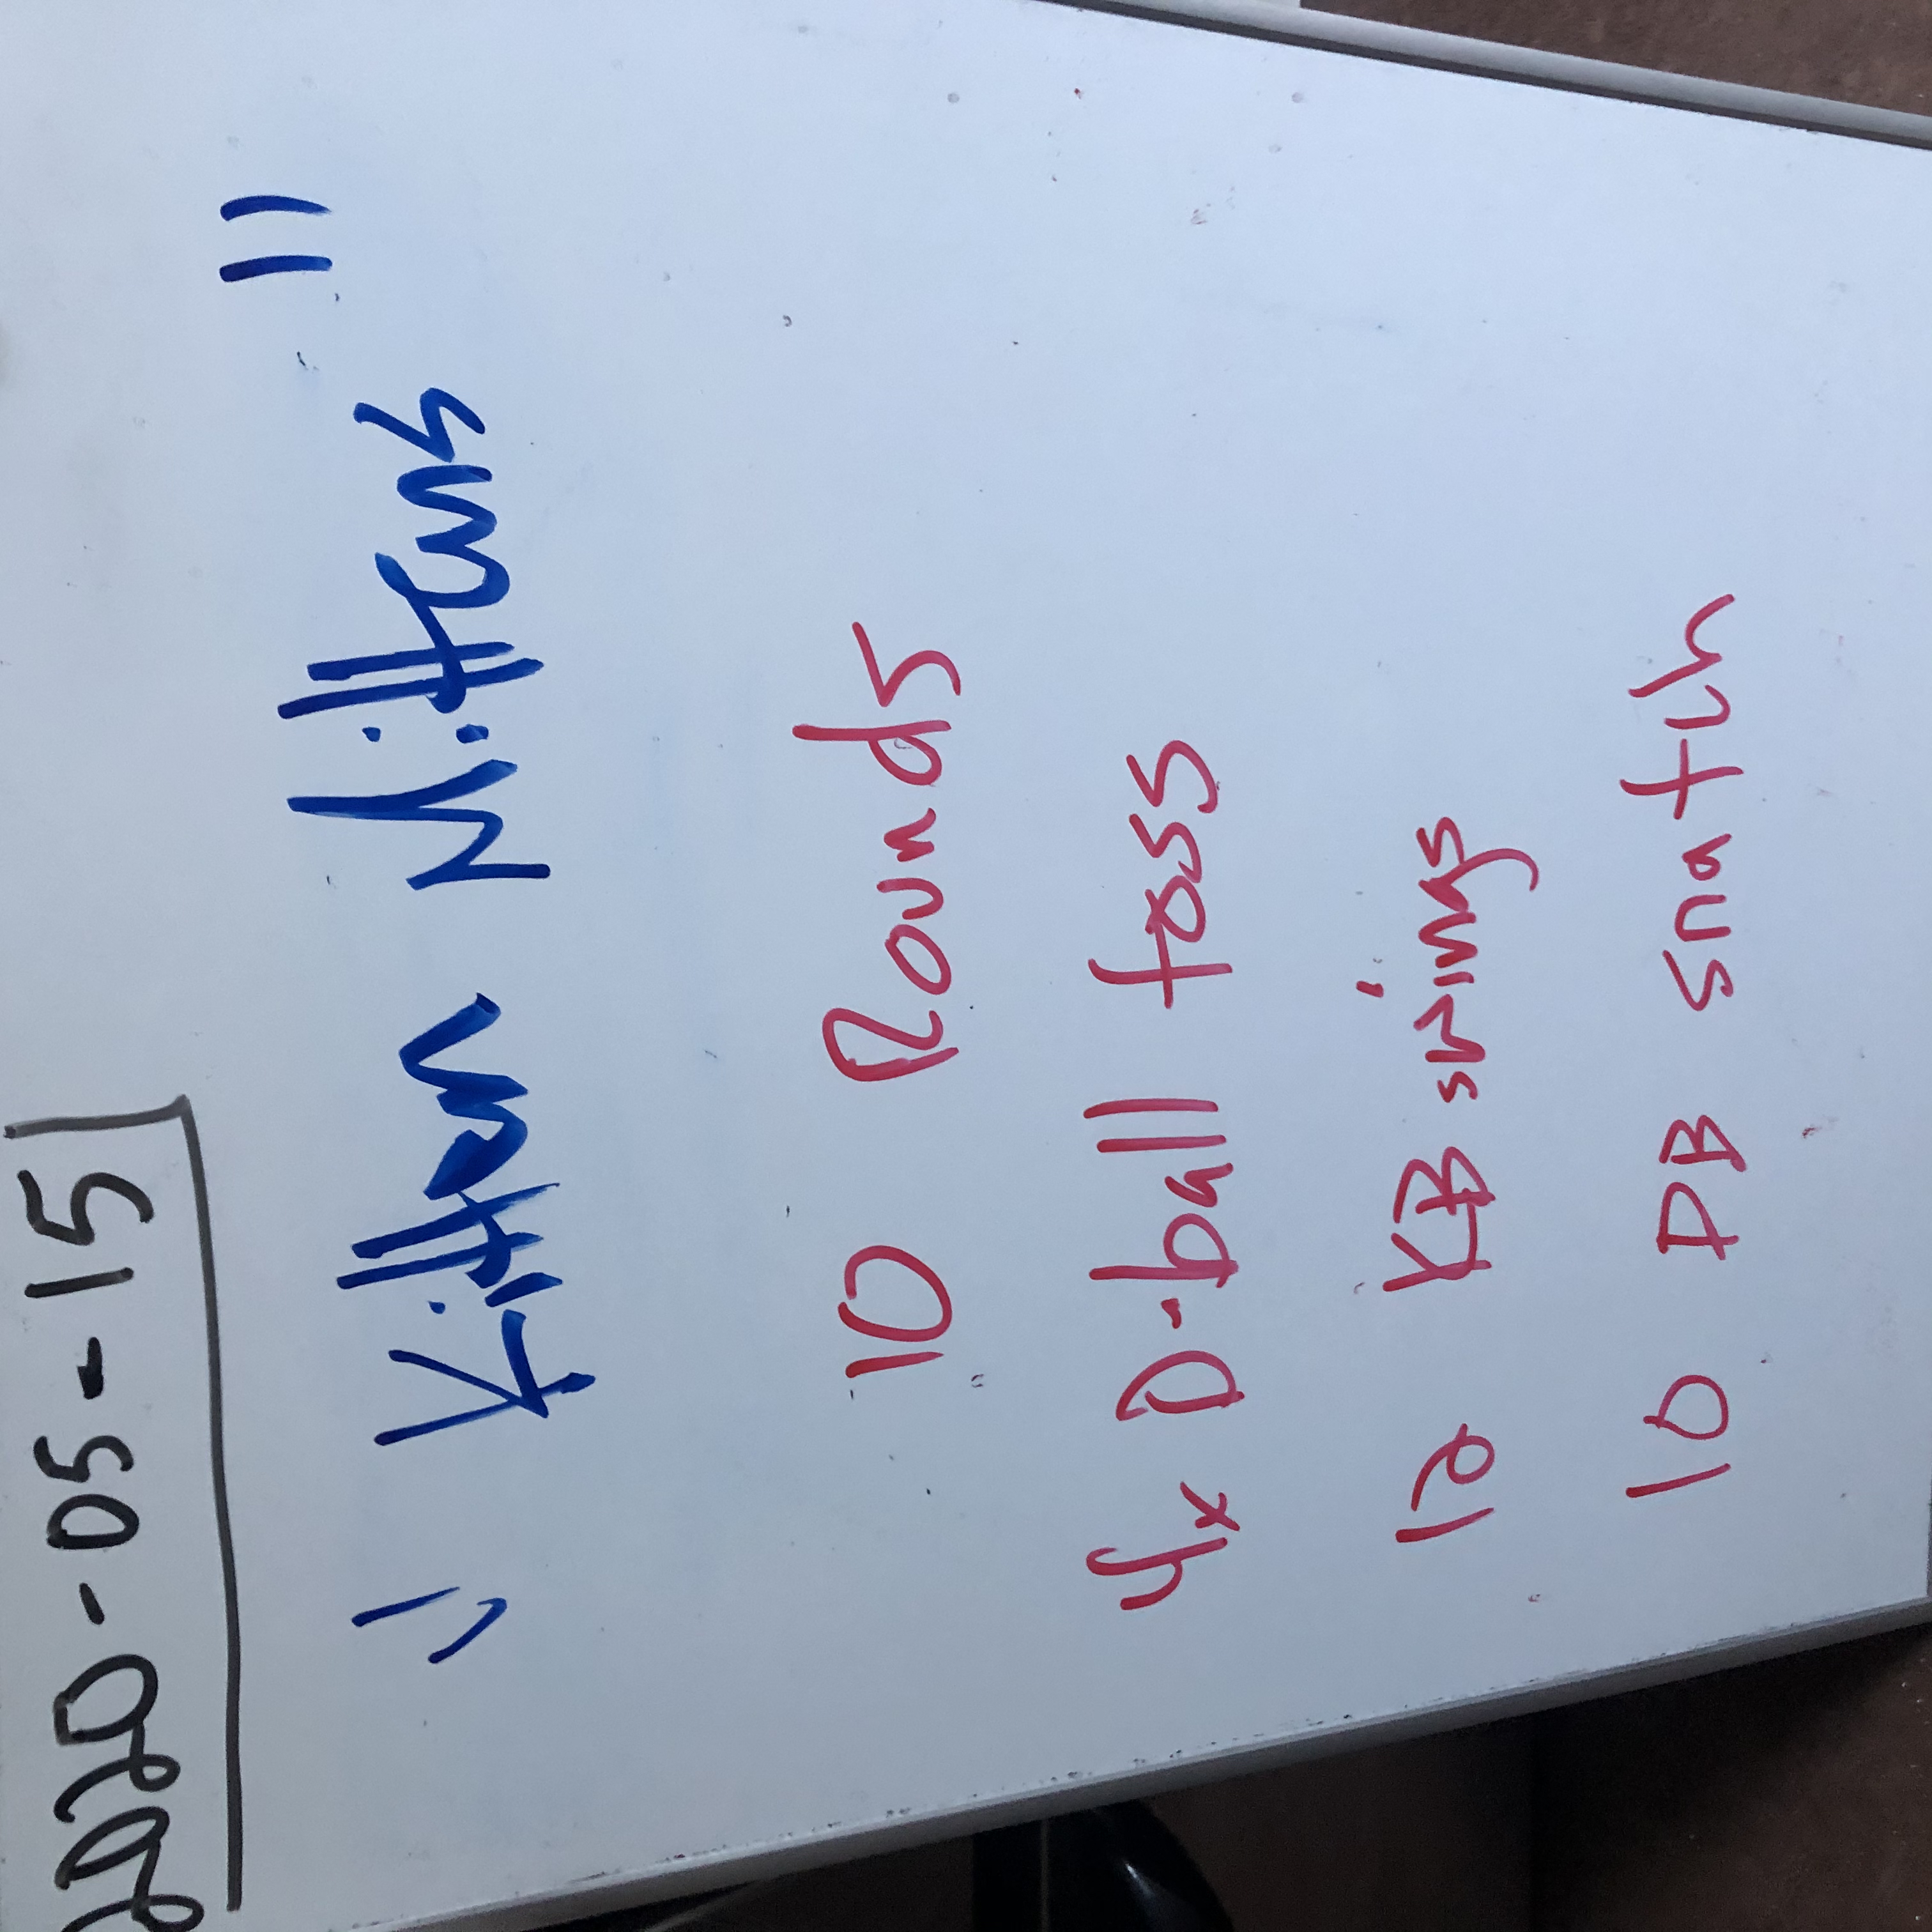 2020-05-15
"Kitten Mittens"
10 Rounds
4x D-ball toss
12 KB swings
10 DB snatch